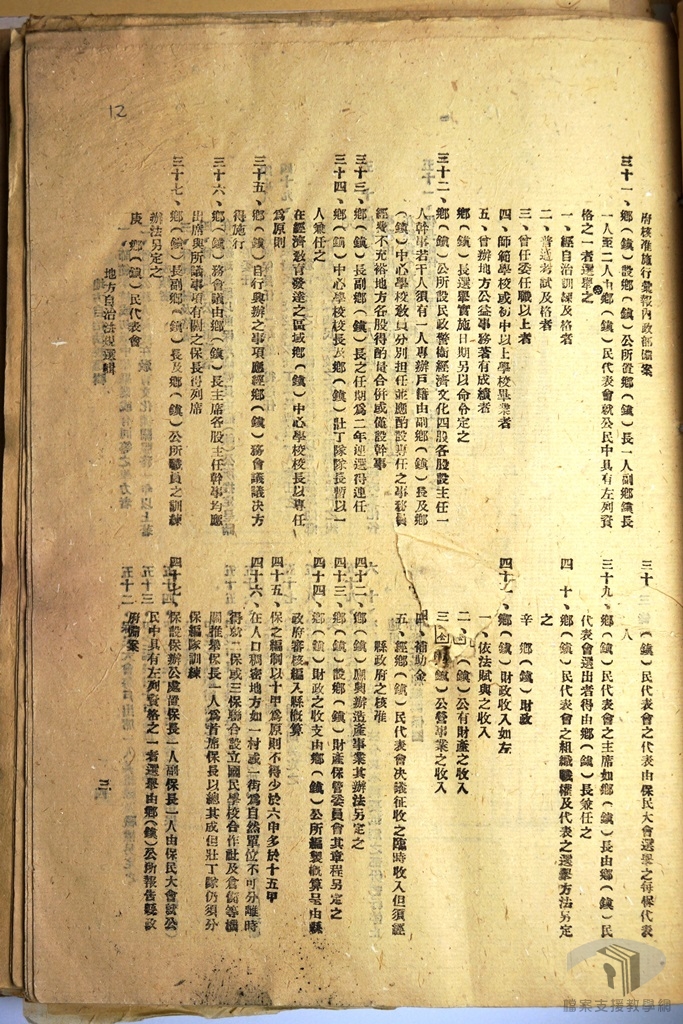 12
府核准施行彙報內政部備案
三十一、鄉(鎮)設鄉(鎮)公所置鄉(鎮)長一人副鄉鎮長
一人至二人由鄉(鎮)民代表會就公民中具有左列資
格之一者選舉之
一、經自治訓練及格者
二、普通考試及格者
三、曾任委任職以上者
四、師範學校或初中以上學校畢業者
五、曾辦地方公益事務著有成績者
鄉(鎮)長選舉實施日期另以命令定之
三十二、鄉(鎮)公所設民政警衛經濟文化四股各股設主任一
人幹事若干人須有一人專辦戶籍由副鄉(鎮)長及鄉
(鎮)中心學校教員分別担任並應酌設專任之事務員
經費不充裕地方各股得酌量合併或僅設幹事
三十三、鄉(鎮)長副鄉(鎮)長之任期為二年連選得連任
三十四、鄉(鎮)中心學校校長及鄉(鎮)壯丁隊隊長暫以一
人兼任之
在經濟教育發達之區域鄉(鎮)中心學校校長以專任
為原則
三十五、鄉(鎮)自行興辦之事項應經鄉(鎮)務會議議決方
得施行
三十六、鄉(鎮)務會議由鄉(鎮)長主席各股主任幹事均應
出席與所議事項有關之保長得列席
三十七、鄉(鎮)長副鄉(鎮)長及鄉(鎮)公所職員之訓練
辦法另定之
庚、鄉(鎮)民代表會
地方自治法規選輯
三十(鎮)民代表會之代表由保民大會選舉之每保代表
三十九、鄉(鎮)民代表會之主席如鄉(鎮)長由鄉(鎮)民
代表會選出者得由鄉(鎮)長兼任之
四十、鄉(鎮)民代表會之組織職權及代表之選舉方法另定
之
辛 鄉(鎮)財政
四十一、鄉(鎮)財政收入如左
一、依法賦與之收入
二、(鎮)公有財產之收入
三、(鎮)公營事業之收入
四、補助金
五、經鄉(鎮)民代表會決議征收之臨時收入但須經
縣政府之核准
四十二、鄉(鎮)應興辦造產事業其辦法另定之
四十三、鄉(鎮)設鄉(鎮)財產保管委員會其章程另定之
四十四、鄉(鎮)財政之收支由鄉(鎮)公所編製概算呈由縣
政府審核編入縣概算
四十五、保之編制以十甲為原則不得少於六甲多於十五甲
四十六、在人口稠密地方如一村或一街為自然單位不可分離時
得就二保或三保聯合設立國民學校合作社及倉儲等機
關推舉保長一人為首席保長以總其成但壯丁隊仍須分
保編隊訓練
四十七、保設保辦公處置保長一人副保長一人由保民大會就公
民中具有左列資格之一者選舉由鄉(鎮)公所報告縣政
府備案
檔案支援教學網